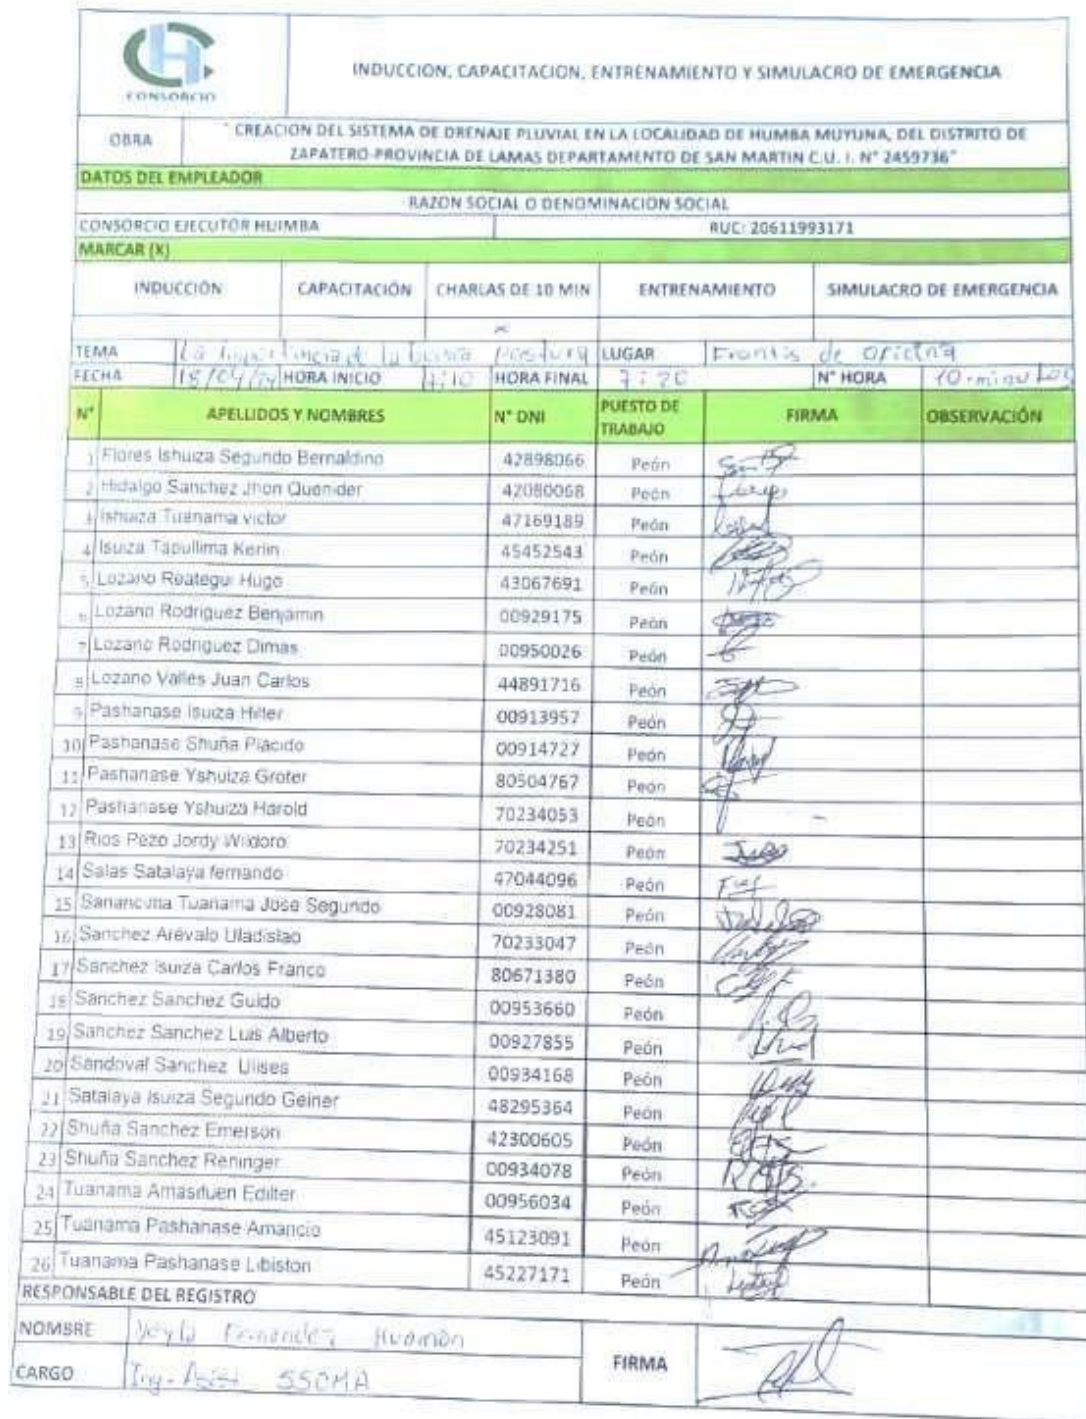 CH
CONSORCIO
INDUCCION, CAPACITACION, ENTRENAMIENTO Y SIMULACRO DE EMERGENCIA
OBRA
" CREACION DEL SISTEMA DE DRENAJE PLUVIAL EN LA LOCALIDAD DE HUMBA MUYUNA, DEL DISTRITO DE
ZAPATERO-PROVINCIA DE LAMAS DEPARTAMENTO DE SAN MARTIN C.U. I. N° 2459736"
DATOS DEL EMPLEADOR
RAZON SOCIAL O DENOMINACION SOCIAL
CONSORCIO EJECUTOR HUIMBA RUC: 20611993171
MARCAR (X)
INDUCCIÓN CAPACITACIÓN CHARLAS DE 10 MIN ENTRENAMIENTO SIMULACRO DE EMERGENCIA
x
TEMA La Importancia de la buena Postura LUGAR Frontis de oficina
FECHA 18/04/24 HORA INICIO 7:10 HORA FINAL 7:20 N° HORA 10-minutos
N° APELLIDOS Y NOMBRES N° DNI PUESTO DE TRABAJO FIRMA OBSERVACIÓN
1 Flores Ishuiza Segundo Bernaldino 42898066 Peón
2 Hidalgo Sanchez Jhon Quenider 42080068 Peón
3 Ishuiza Tuanama victor 47169189 Peón
4 Isuiza Tapullima Kerlin 45452543 Peón
5 Lozano Reategui Hugo 43067691 Peón
6 Lozano Rodriguez Benjamin 00929175 Peón
7 Lozano Rodriguez Dimas 00950026 Peón
8 Lozano Valles Juan Carlos 44891716 Peón
9 Pashanase Isuiza Hilter 00913957 Peón
10 Pashanase Shuña Placido 00914727 Peón
11 Pashanase Yshuiza Groter 80504767 Peón
12 Pashanase Yshuiza Harold 70234053 Peón
13 Rios Pezo Jordy Wildoro 70234251 Peón
14 Salas Satalaya fernando 47044096 Peón
15 Sanancina Tuanama Jose Segundo 00928081 Peón
16 Sanchez Arévalo Uladislao 70233047 Peón
17 Sanchez Isuiza Carlos Franco 80671380 Peón
18 Sanchez Sanchez Guido 00953660 Peón
19 Sanchez Sanchez Luis Alberto 00927855 Peón
20 Sandoval Sanchez Ulises 00934168 Peón
21 Satalaya Isuiza Segundo Geiner 48295364 Peón
22 Shuña Sanchez Emerson 42300605 Peón
23 Shuña Sanchez Reninger 00934078 Peón
24 Tuanama Amasifuen Edilter 00956034 Peón
25 Tuanama Pashanase Amancio 45123091 Peón
26 Tuanama Pashanase Libiston 45227171 Peón
RESPONSABLE DEL REGISTRO
NOMBRE Fernandez Huamán
CARGO Ing. Asist SSOMA
FIRMA